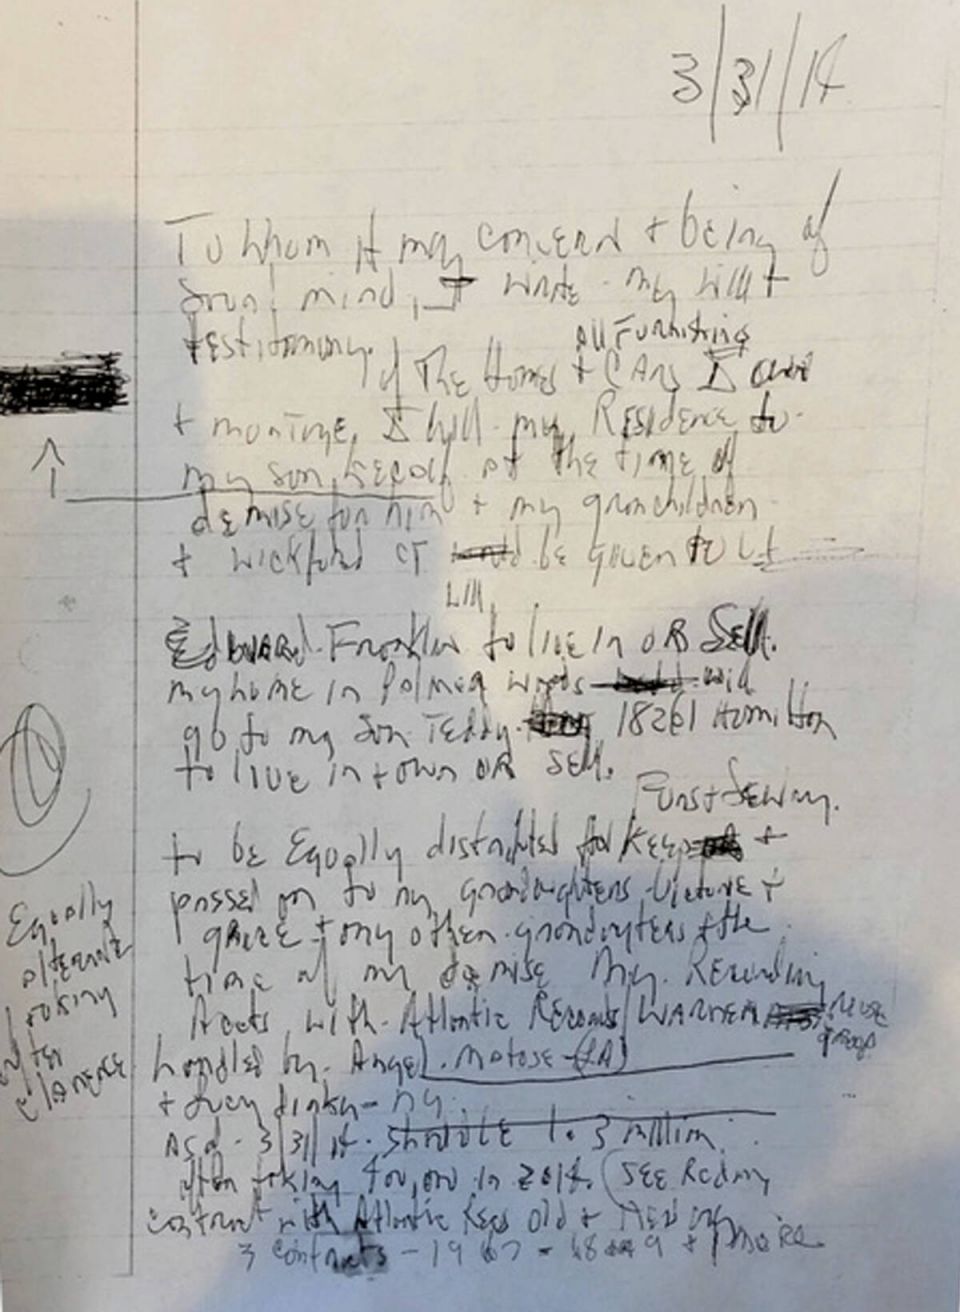 3/31/14
To Whom it may concern & being of
sound mind, I write my will &
testimony.
All Furnishing
of The Homes & CARS I own
+ I will my Residence to
my son Kecalf at the time of
demise for him + my granchildren
+ Wickford CT be given to
will
Edward Franklin to live in OR Sell.
my home in Palmer Woods will
go to my Son Teddy. 18261 Hamilton
to live in + own OR Sell.
Furs + Jewelry.
to be Equally distributed for Keeps +
passed on to my grandaughters Victorie +
grace + any other grandauters + the
time of my demise My Recording
Accts with Atlantic Records/WARNER music
group
handled by Angel
+ ny
As of 3/31/14 should be 1.3 million
after taking 400,000 in 2014. (SEE Recding
contract with Atlantic Recs Old + New
3 contracts - 1967 - 68 + more
Equally
alternate
looking
after
clarence